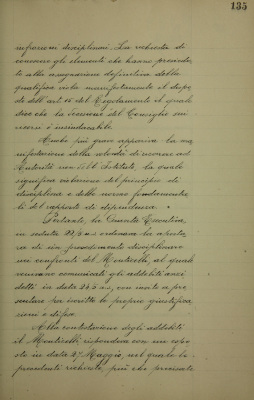 135
infrazioni disciplinari. La richiesta di
conoscere gli elementi che hanno presiedu-
to alla assegnazione definitiva della
qualifica viola manifestamente il dispo
sto dell'art. 16 del Regolamento il quale
dice che la decisione del Consiglio sui
ricorsi è insindacabile.
Anche più grave appariva la ma
nifestazione della volontà di ricorrere ad
Autorità non dell'Istituto, la quale
significa violazione del principio di
disciplina e delle norme fondamenta
li del rapporto di dipendenza.
Pertanto, la Giunta Esecutiva
in seduta 22/5 ordinava la apertu
ra di un procedimento disciplinare
nei confronti del Monticelli, al quale
venivano comunicati gli addebiti anzi
detti in data 24.5, con invito a pre
sentare per iscritto le proprie giustifica
zioni e difese.
Alla contestazione degli addebiti
il Monticelli rispondeva con un espo
sto in data 27 Maggio, nel quale le
pretestuali richieste, più che precisate